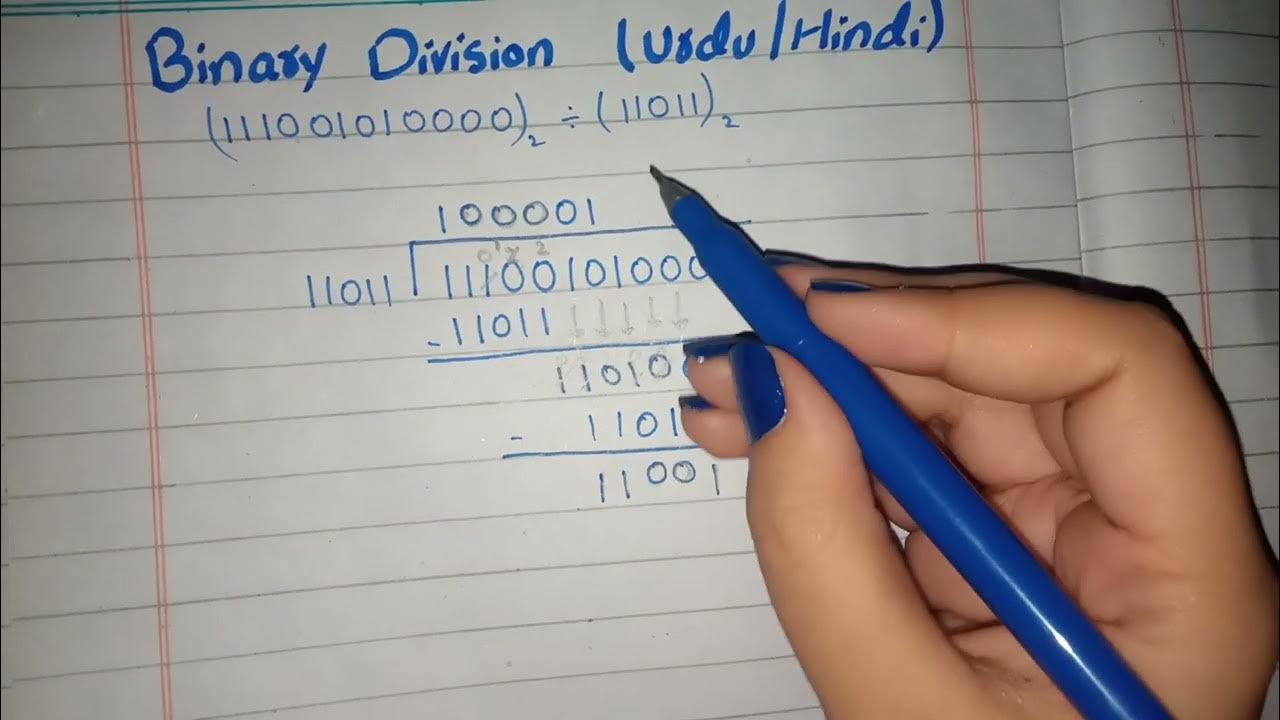 Binary Division (Urdu/Hindi)
(111001010000)₂ ÷ (11011)₂
100001
11011 11100101000
- 11011
11010
- 1101
11001